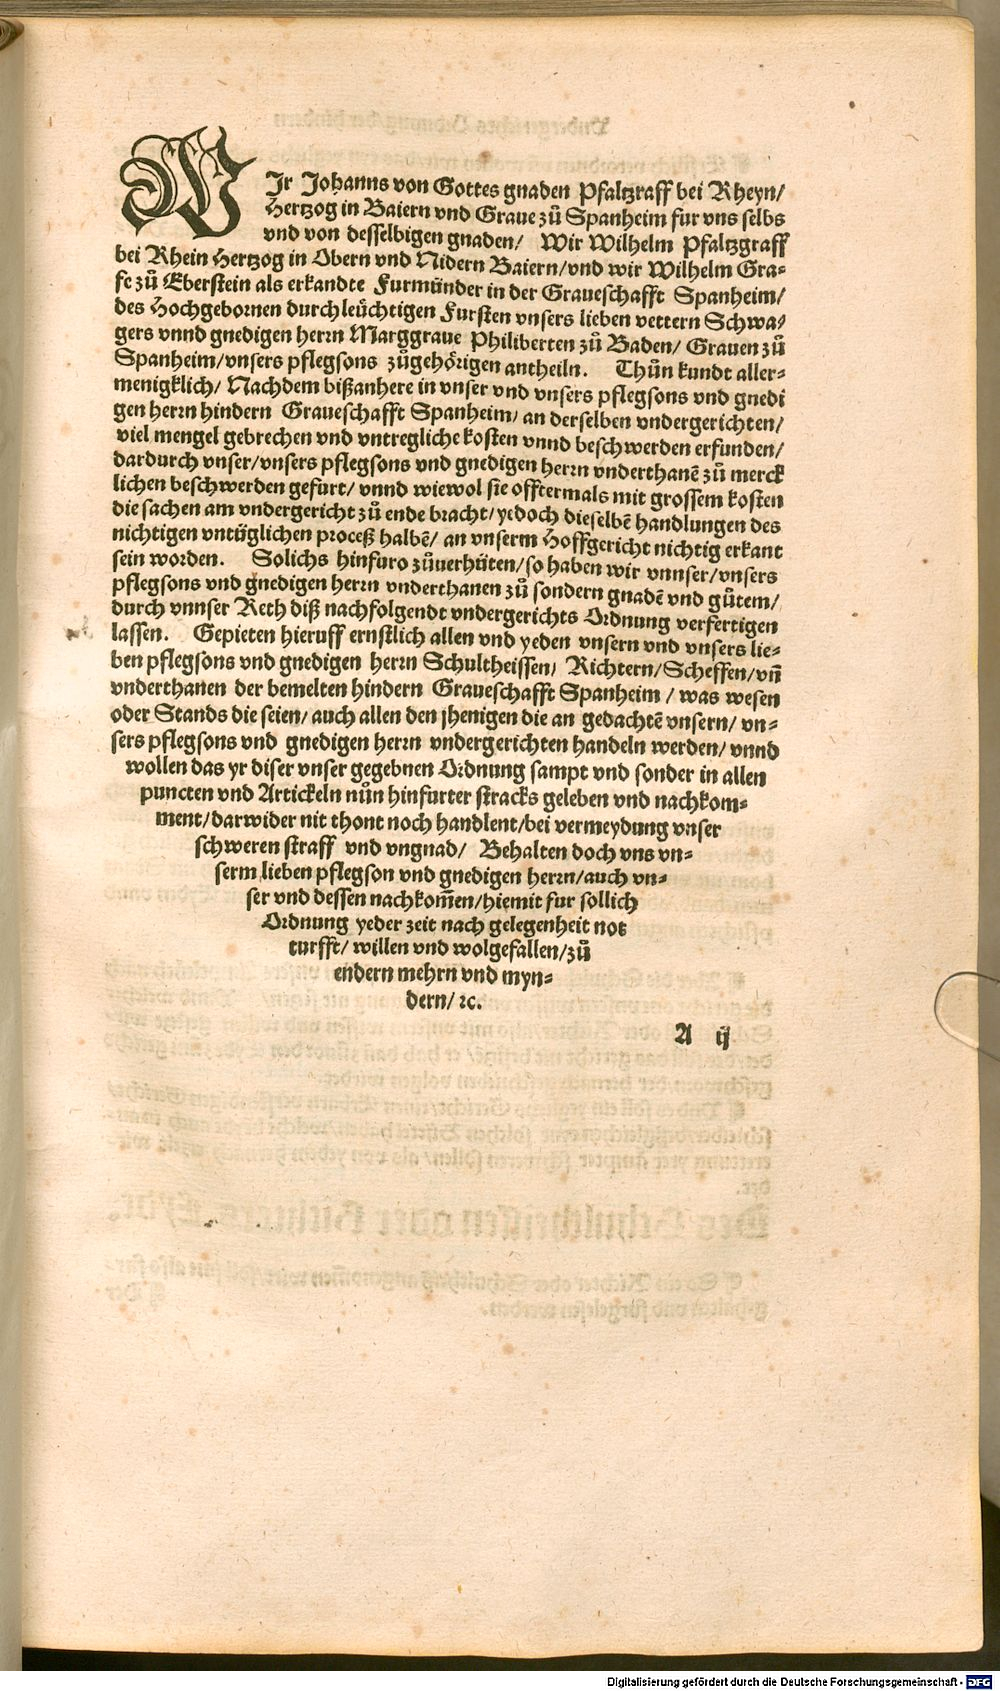 WIr Johanns von Gottes gnaden Pfaltzraff bei Rheyn/
Hertzog in Baiern vnd Graue zů Spanheim fur vns selbs
vnd von desselbigen gnaden/ Wir Wilhelm Pfaltzgraff
bei Rhein Hertzog in Obern vnd Nidern Baiern/vnd wir Wilhelm Gra-
fe zů Eberstein als erkandte Furmünder in der Graueschafft Spanheim/
des Hochgebornen durchleüchtigen Fursten vnsers lieben vettern Schwa-
gers vnnd gnedigen herrn Marggraue Philiberten zů Baden/ Grauen zů
Spanheim/vnsers pflegsons zůgehörigen antheiln. Thůn kundt aller-
menigklich/ Nachdem bißanhere in vnser vnd vnsers pflegsons vnd gnedi
gen herrn hindern Graueschafft Spanheim/ an derselben vndergerichten/
viel mengel gebrechen vnd vntregliche kosten vnnd beschwerden erfunden/
dardurch vnser/vnsers pflegsons vnd gnedigen herrn vnderthanē zů merck
lichen beschwerden gefurt/ vnnd wiewol sie offtermals mit grossem kosten
die sachen am vndergericht zů ende bracht/ yedoch dieselbē handlungen des
nichtigen vntüglichen proceß halbē/ an vnserm Hoffgericht nichtig erkant
sein worden. Solichs hinfuro zůuerhüten/so haben wir vnnser/vnsers
pflegsons vnd gnedigen herrn vnderthanen zů sondern gnadē vnd gůtem/
durch vnnser Reth diß nachfolgendt vndergerichts Ordnung verfertigen
lassen. Gepieten hieruff ernstlich allen vnd yeden vnsern vnd vnsers lie-
ben pflegsons vnd gnedigen herrn Schultheissen/ Richtern/Scheffen/vñ
vnderthanen der bemelten hindern Graueschafft Spanheim / was wesen
oder Stands die seien/ auch allen den jhenigen die an gedachtē vnsern/ vn-
sers pflegsons vnd gnedigen herrn vndergerichten handeln werden/ vnnd
wollen das yr diser vnser gegebnen Ordnung sampt vnd sonder in allen
puncten vnd Artickeln nůn hinfurter stracks geleben vnd nachkom-
ment/darwider nit thont noch handlent/bei vermeydung vnser
schweren straff vnd vngnad/ Behalten doch vns vn-
serm lieben pflegson vnd gnedigen herrn/auch vn-
ser vnd dessen nachkom̄en/hiemit fur sollich
Ordnung yeder zeit nach gelegenheit not
turfft/ willen vnd wolgefallen/zů
endern mehrn vnd myn-
dern/ ꝛc.
A ij
Digitalisierung gefördert durch die Deutsche Forschungsgemeinschaft - DFG